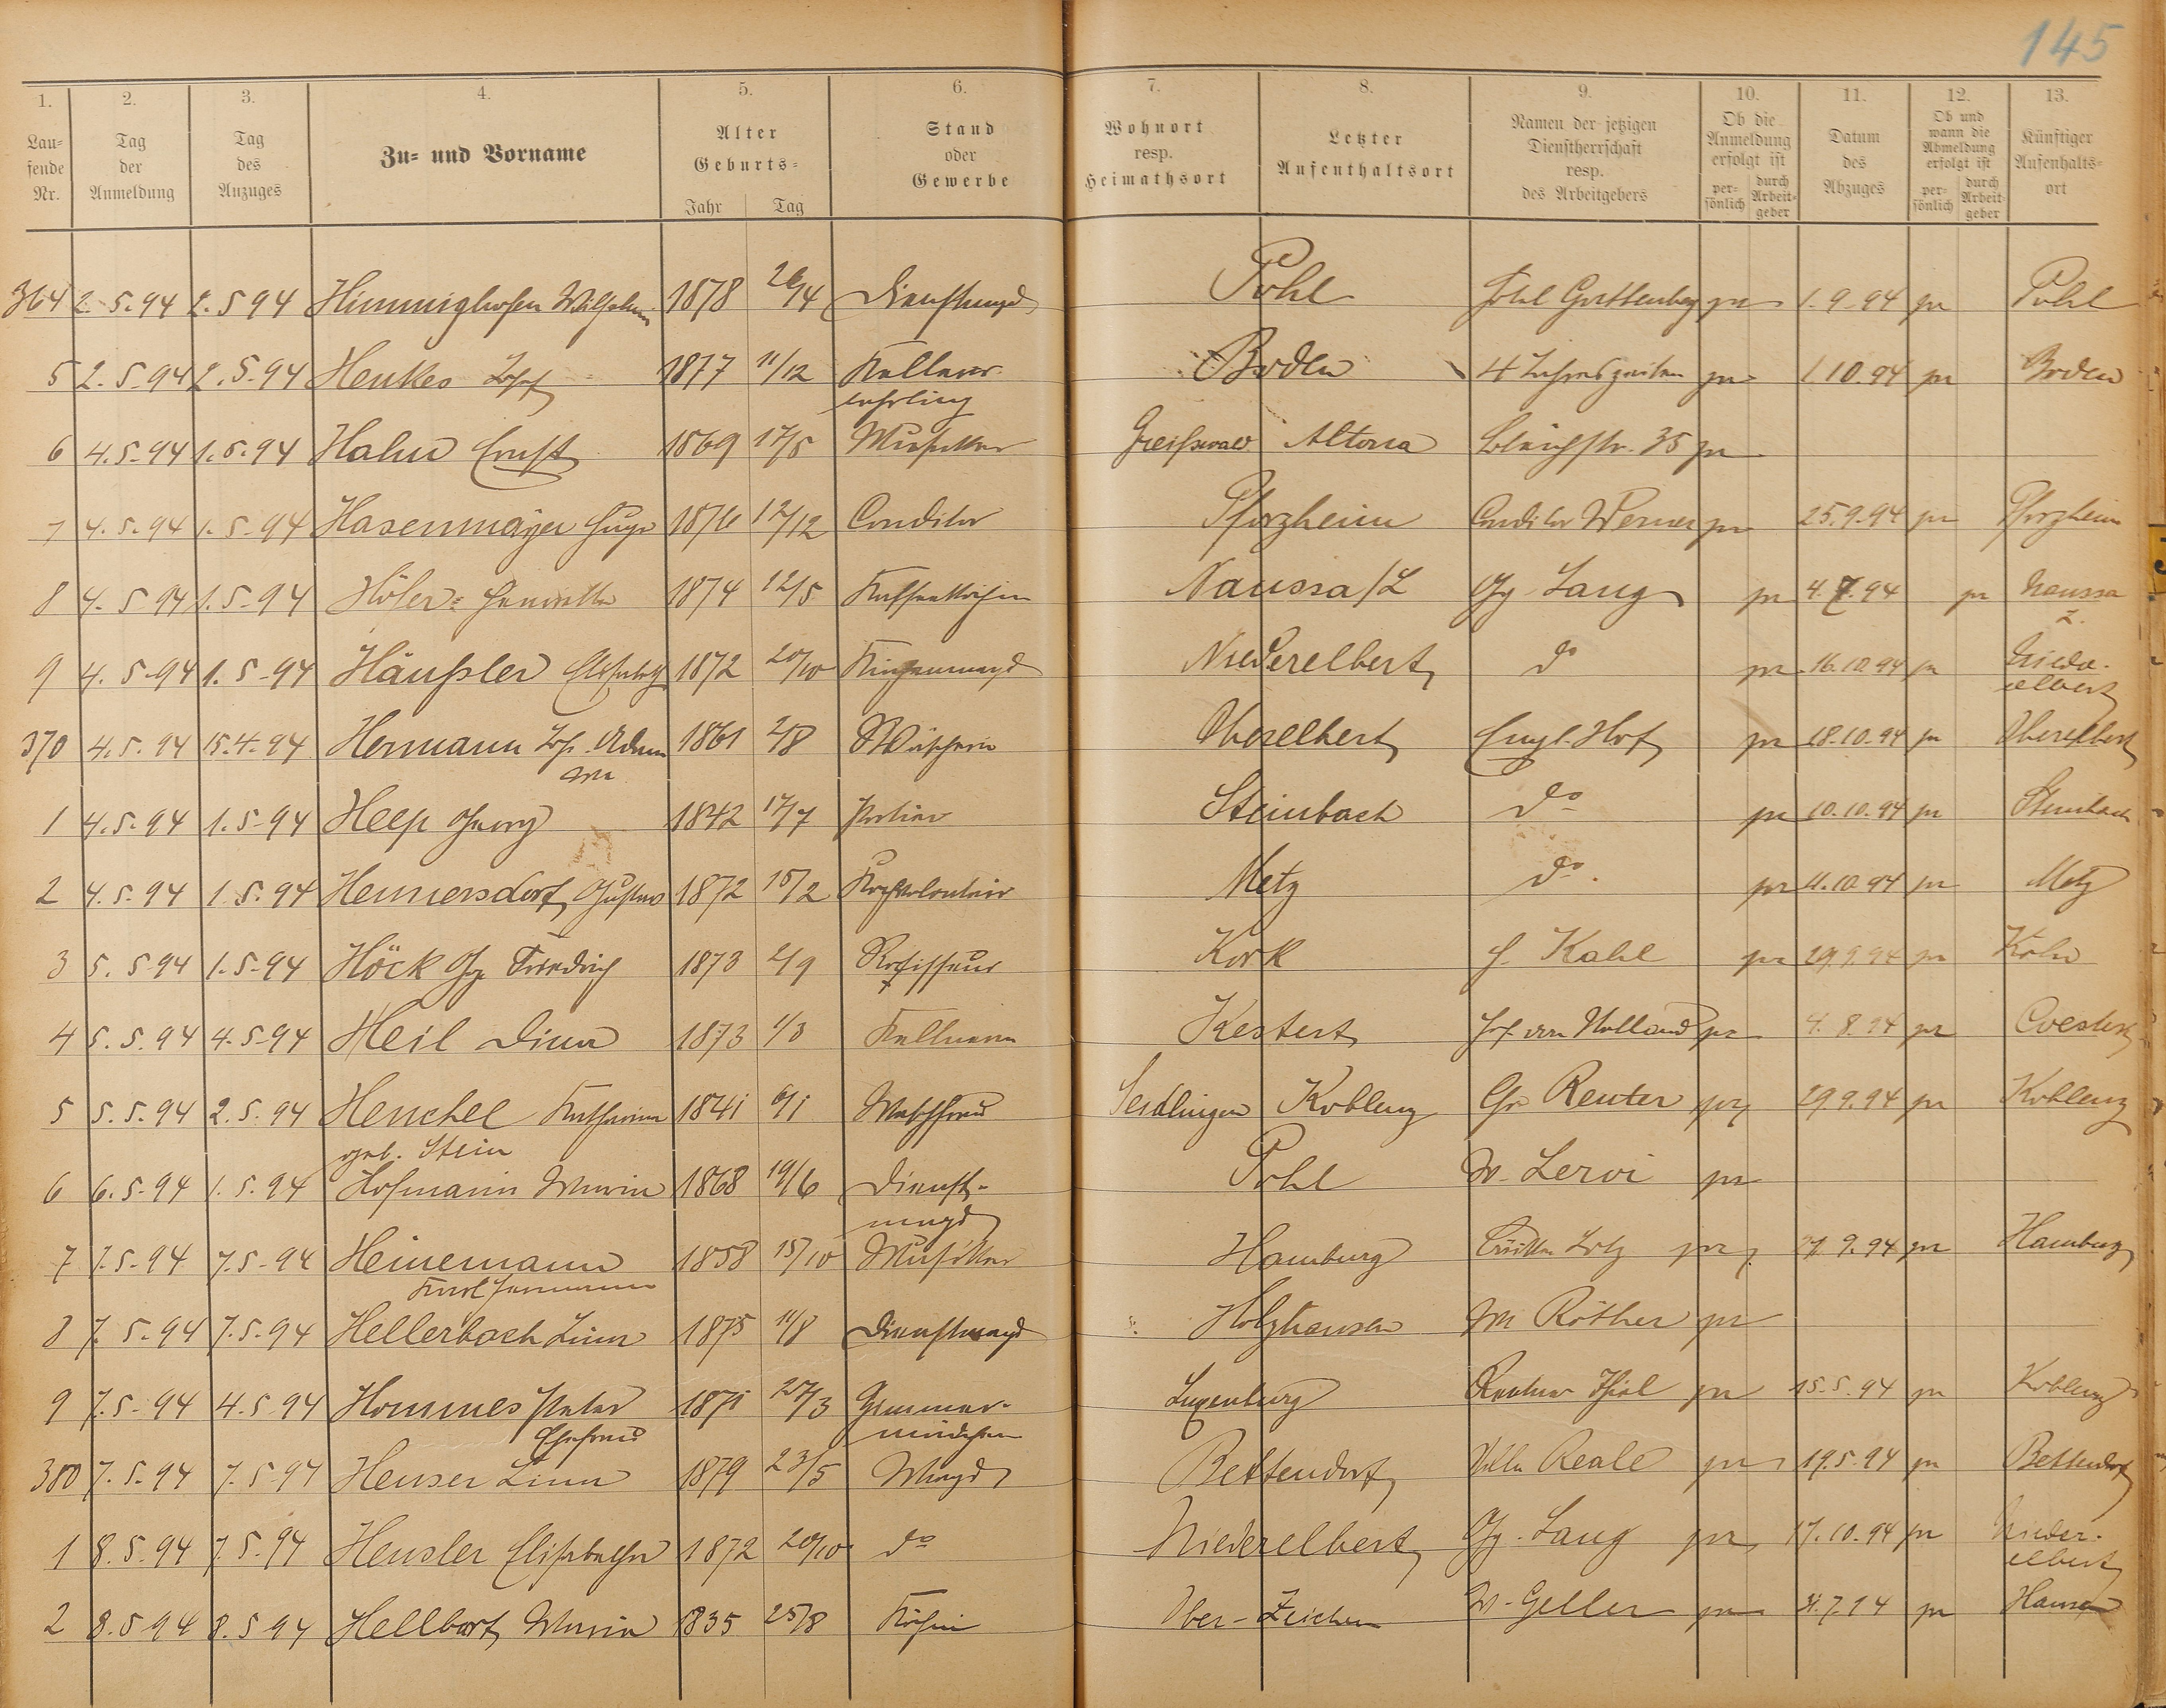 145
1. 2. 3. 4. 5. 6. 7. 8. 9. 10. 11. 12. 13.
Laufende Nr. Tag der Anmeldung Tag des Anzuges Zu- und Vorname Alter Geburts- Jahr Tag Stand oder Gewerbe Wohnort resp. Heimathsort Letzter Aufenthaltsort Namen der jetzigen Dienstherrschaft resp. des Arbeitgebers Ob die Anmeldung erfolgt ist persönlich durch Arbeitgeber Datum des Abzuges Ob und wann die Abmeldung erfolgt ist persönlich durch Arbeitgeber Künftiger Aufenhaltsort
364 2.5.94 2.5 94 Himmighofen 1878 Dienstmagd Pohl pr 1.9.94 pr Pohl
5 2.5.94 2.5.94 Henkes Josef 1877 11/12 Kellner Boden 4 Jahreszeiten pr 1.10.94 pr Boden
lehrling
6 4.5.94 1.5.94 Hahn Ernst 1869 17/5 Musiker Greifswald Altona 35 pr
7 4.5.94 1.5.94 Hasenmayer Hugo 1876 12/12 Conditor Pforzheim Conditor Werner pr 25.9.94 pr Pforzheim
8 4.5 94 1.5.94 Höfer 1874 12/5 Naussa/L Gg. Lang pr 4.7.94 pr Naussa
9 4.5.94 1.5.94 Häußler 1872 20/10 Küchenmagd Niederelbert do pr 16.10.94 pr Nieder-
elbert
370 4.5.94 15.4.94 Hermann Jos. Adam 1861 2/8 Wäscherin Oberelbert Engl. Hof pr 18.10.94 pr Oberelbert
1 4.5.94 1.5.94 Heep Georg 1842 17/7 Portier Steinbach do pr 10.10.94 pr Steinbach
2 4.5.94 1.5.94 Hennersdorf Gustav 1872 15/2 Kochvolontair Metz do. pr 11.10.94 pr Metz
3 5.5 94 1.5.94 Höck Gg. Friedrich 1873 2/9 Kork H. Kahl pr 29.9.94 pr
4 5.5.94 4.5.94 Heil Dina 1873 1/3 Kellnerin Kestert Hof von Holland pr 4.8.94 pr
5 5.5.94 2.5.94 Henchel Katharina 1841 6/1 Waschfrau Koblenz Reuter pr 29.9.94 pr Koblenz
geb. Stein
6 6.5.94 1.5.94 Hofmann Maria 1868 19/6 Dienst- Pohl pr
magd
7 7.5.94 7.5.94 Heinemann 1858 15/10 Musiker Hamburg pr 27.9.94 pr Hamburg
Karl Hermann
8 7.5.94 7.5.94 Hellerbach Lina 1875 11/8 Dienstmagd Holzhausen Röther pr
9 7.5.94 4.5 94 Hommes Peter 1871 27/3 Zimmer- Luxenburg Rentner Thiel pr 15.5.94 pr Koblenz
Ehefrau mädchen
380 7.5.94 7.5 94 Henser Lina 1879 23/5 Magd Bettendorf Villa Reale pr 19.5.94 pr Bettendorf
1 8.5.94 7.5.94 Hensler Elisabetha 1872 20/10 do Niederelbert Gg. Lang pr 17.10.94 pr Nieder-
elbert
2 8.5 94 8.5 94 Maria 1835 25/8 Köchin W. Geller pr 31.7.94 pr